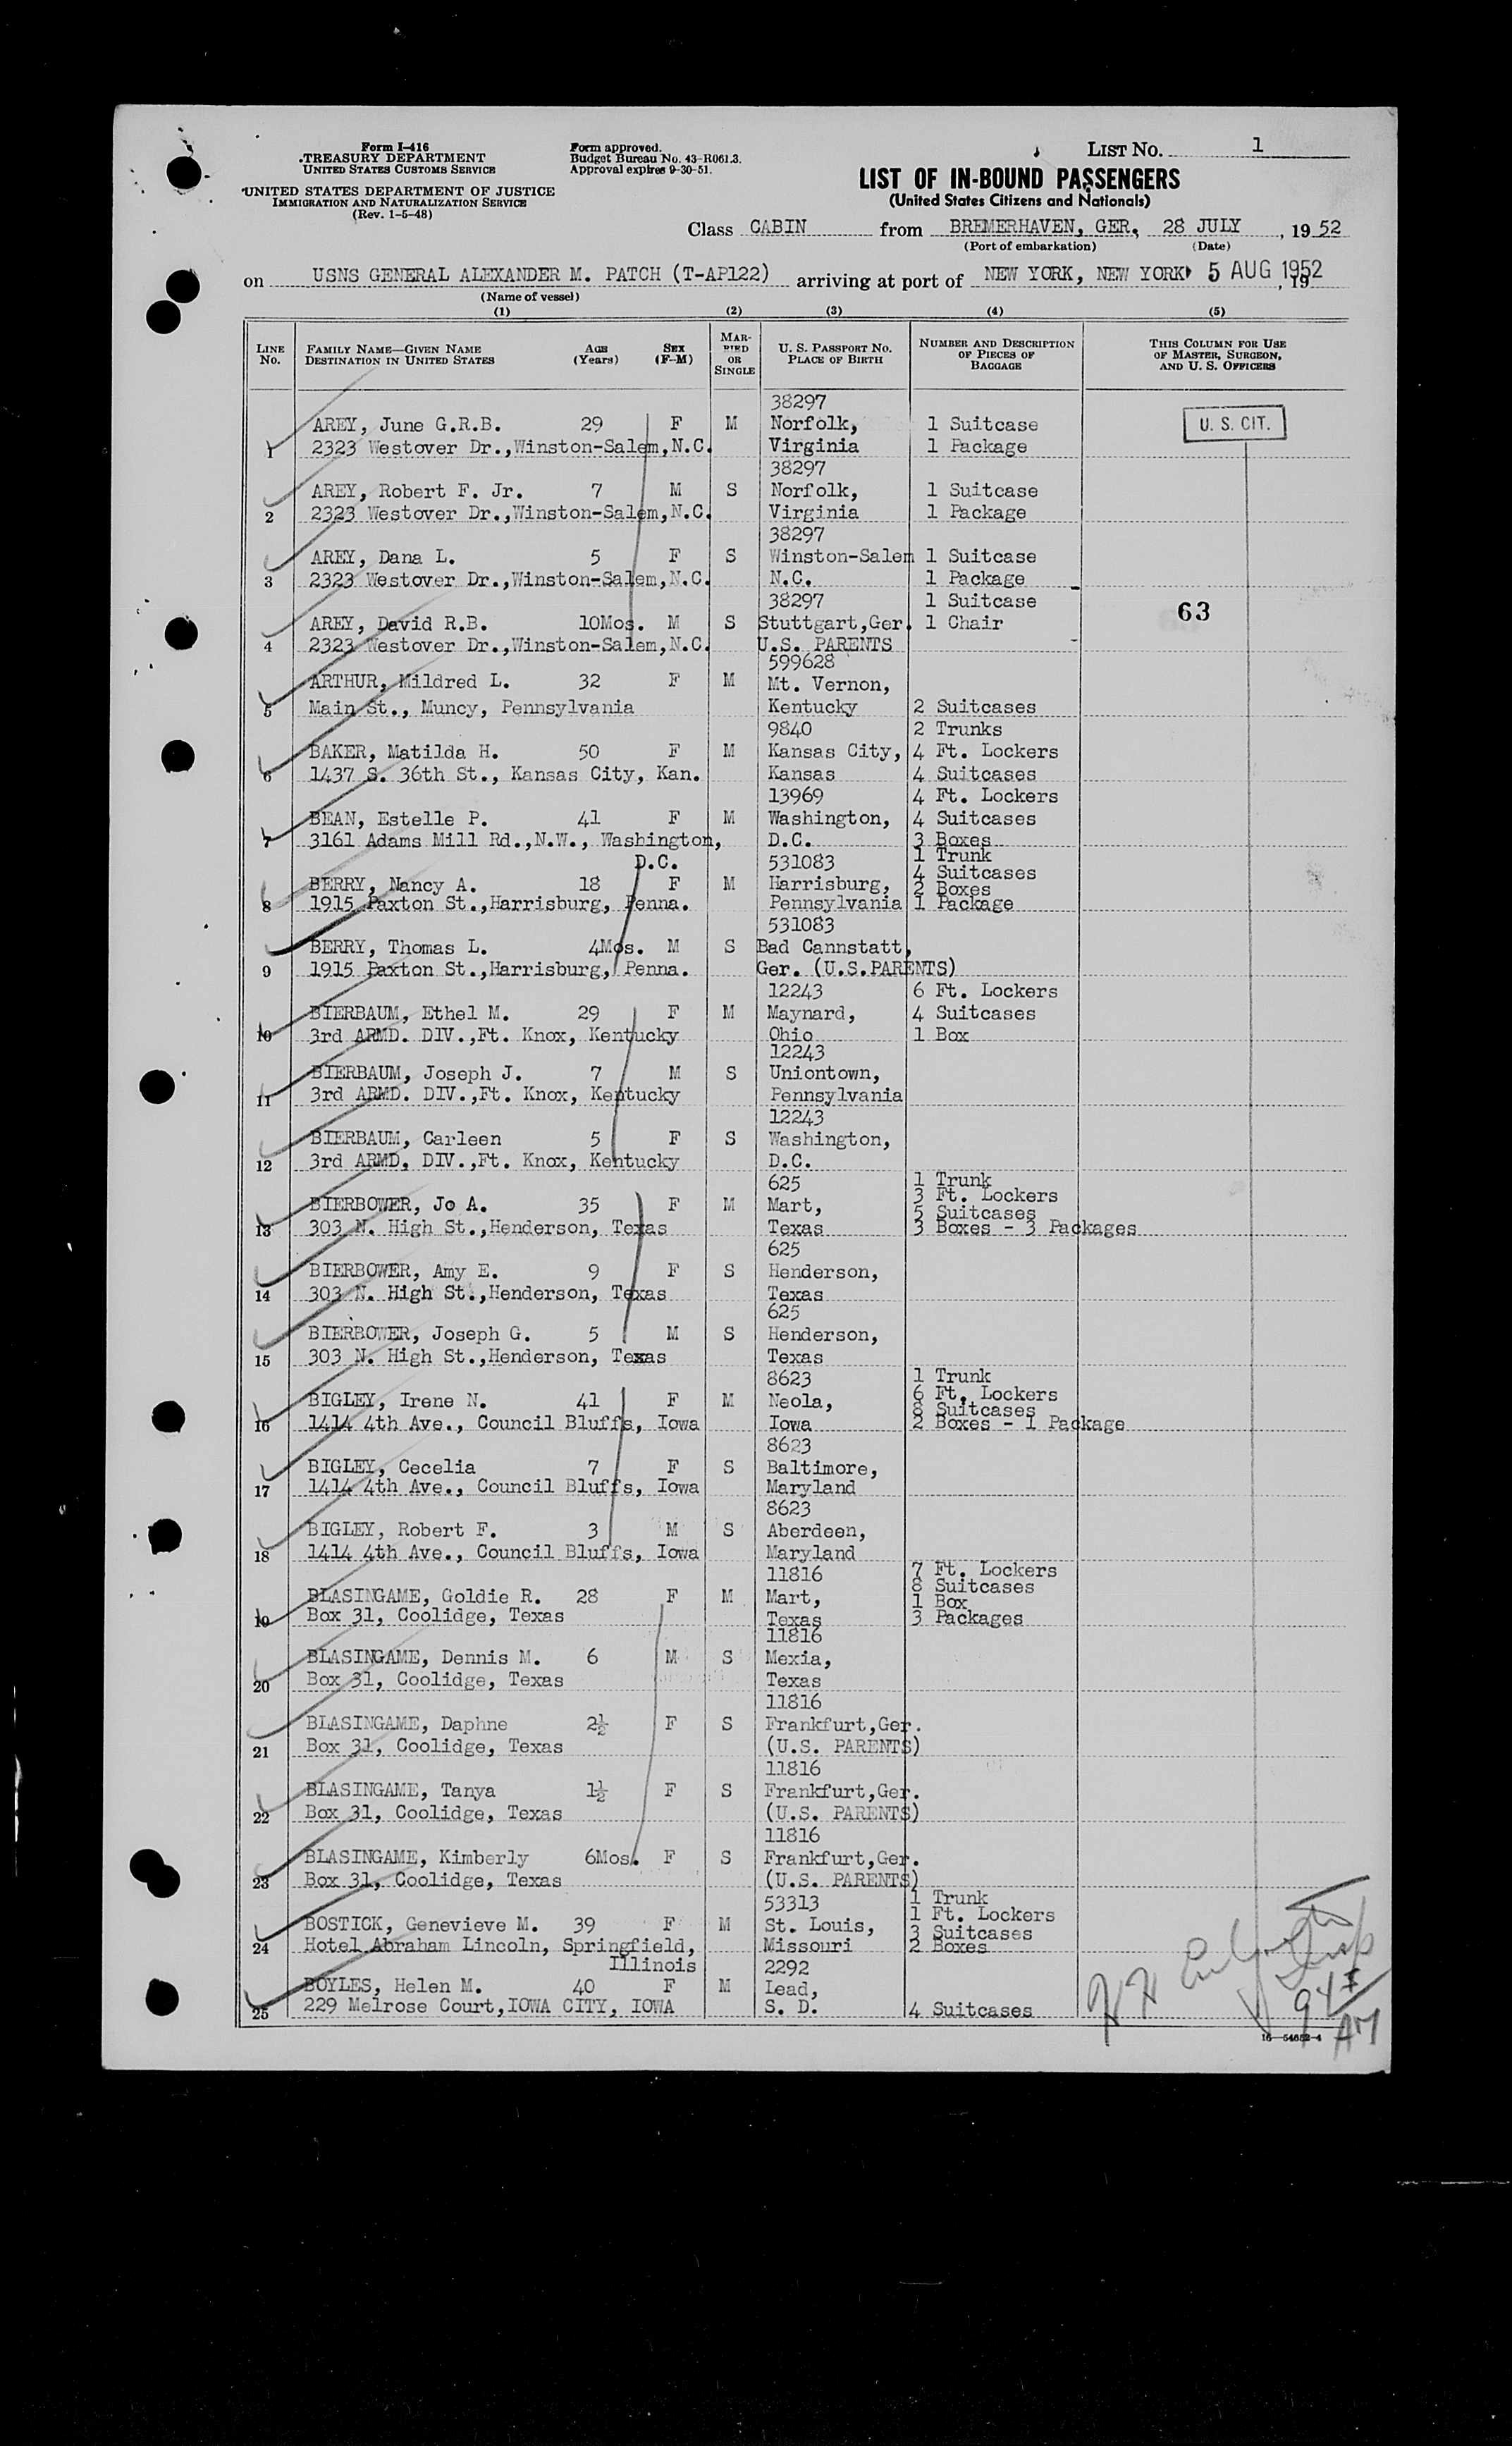 Form I-416
TREASURY DEPARTMENT
UNITED STATES CUSTOMS SERVICE
UNITED STATES DEPARTMENT OF JUSTICE
IMMIGRATION AND NATURALIZATION SERVICE
(Rev. 1-5-48)
Form approved.
Budget Bureau No. 43-R061.3.
Approval expires 9-30-51.
LIST NO. 1
LIST OF IN-BOUND PASSENGERS
(United States Citizens and Nationals)
Class CABIN from BREMERHAVEN, GER., 28 JULY, 1952
(Port of embarkation) (Date)
on USNS GENERAL ALEXANDER M. PATCH (T-AP122) arriving at port of NEW YORK, NEW YORK 5 AUG 1952, 19
(Name of vessel)
(1) (2) (3) (4) (5)
LINE No. FAMILY NAME—GIVEN NAME DESTINATION IN UNITED STATES AGE (Years) SEX (F-M) MARRIED OR SINGLE U. S. PASSPORT NO. PLACE OF BIRTH NUMBER AND DESCRIPTION OF PIECES OF BAGGAGE THIS COLUMN FOR USE OF MASTER, SURGEON, AND U. S. OFFICERS
38297
AREY, June G.R.B. 29 F M Norfolk, 1 Suitcase U. S. CIT.
1 2323 Westover Dr.,Winston-Salem,N.C. Virginia 1 Package
38297
AREY, Robert F. Jr. 7 M S Norfolk, 1 Suitcase
2 2323 Westover Dr.,Winston-Salem,N.C. Virginia 1 Package
38297
AREY, Dana L. 5 F S Winston-Salem 1 Suitcase
3 2323 Westover Dr.,Winston-Salem,N.C. N.C. 1 Package
38297 1 Suitcase 63
AREY, David R.B. 10Mos. M S Stuttgart,Ger. 1 Chair
4 2323 Westover Dr.,Winston-Salem,N.C. U.S. PARENTS
599628
ARTHUR, Mildred L. 32 F M Mt. Vernon,
5 Main St., Muncy, Pennsylvania Kentucky 2 Suitcases
9840 2 Trunks
BAKER, Matilda H. 50 F M Kansas City, 4 Ft. Lockers
6 1437 S. 36th St., Kansas City, Kan. Kansas 4 Suitcases
13969 4 Ft. Lockers
BEAN, Estelle P. 41 F M Washington, 4 Suitcases
7 3161 Adams Mill Rd.,N.W., Washington, D.C. 3 Boxes
D.C. 531083 1 Trunk
4 Suitcases
BERRY, Nancy A. 18 F M Harrisburg, 2 Boxes
8 1915 Paxton St.,Harrisburg, Penna. Pennsylvania 1 Package
531083
BERRY, Thomas L. 4Mos. M S Bad Cannstatt,
9 1915 Paxton St.,Harrisburg, Penna. Ger. (U.S.PARENTS)
12243 6 Ft. Lockers
BIERBAUM, Ethel M. 29 F M Maynard, 4 Suitcases
10 3rd ARMD. DIV.,Ft. Knox, Kentucky Ohio 1 Box
12243
BIERBAUM, Joseph J. 7 M S Uniontown,
11 3rd ARMD. DIV.,Ft. Knox, Kentucky Pennsylvania
12243
BIERBAUM, Carleen 5 F S Washington,
12 3rd ARMD. DIV.,Ft. Knox, Kentucky D.C.
625 1 Trunk
3 Ft. Lockers
BIERBOWER, Jo A. 35 F M Mart, 5 Suitcases
13 303 N. High St.,Henderson, Texas Texas 3 Boxes - 3 Packages
625
BIERBOWER, Amy E. 9 F S Henderson,
14 303 N. High St.,Henderson, Texas Texas
625
BIERBOWER, Joseph G. 5 M S Henderson,
15 303 N. High St.,Henderson, Texas Texas
8623 1 Trunk
6 Ft. Lockers
BIGLEY, Irene N. 41 F M Neola, 8 Suitcases
16 1414 4th Ave., Council Bluffs, Iowa Iowa 2 Boxes - 1 Package
8623
BIGLEY, Cecelia 7 F S Baltimore,
17 1414 4th Ave., Council Bluffs, Iowa Maryland
8623
BIGLEY, Robert F. 3 M S Aberdeen,
18 1414 4th Ave., Council Bluffs, Iowa Maryland
11816 7 Ft. Lockers
8 Suitcases
BLASINGAME, Goldie R. 28 F M Mart, 1 Box
19 Box 31, Coolidge, Texas Texas 3 Packages
11816
BLASINGAME, Dennis M. 6 M S Mexia,
20 Box 31, Coolidge, Texas Texas
11816
BLASINGAME, Daphne 2½ F S Frankfurt,Ger.
21 Box 31, Coolidge, Texas (U.S. PARENTS)
11816
BLASINGAME, Tanya 1½ F S Frankfurt,Ger.
22 Box 31, Coolidge, Texas (U.S. PARENTS)
11816
BLASINGAME, Kimberly 6Mos. F S Frankfurt,Ger.
23 Box 31, Coolidge, Texas (U.S. PARENTS)
53313 1 Trunk
1 Ft. Lockers
BOSTICK, Genevieve M. 39 F M St. Louis, 3 Suitcases
24 Hotel Abraham Lincoln, Springfield, Missouri 2 Boxes
Illinois 2292
BOYLES, Helen M. 40 F M Lead,
25 229 Melrose Court,IOWA CITY, IOWA S. D. 4 Suitcases
16—54682-4